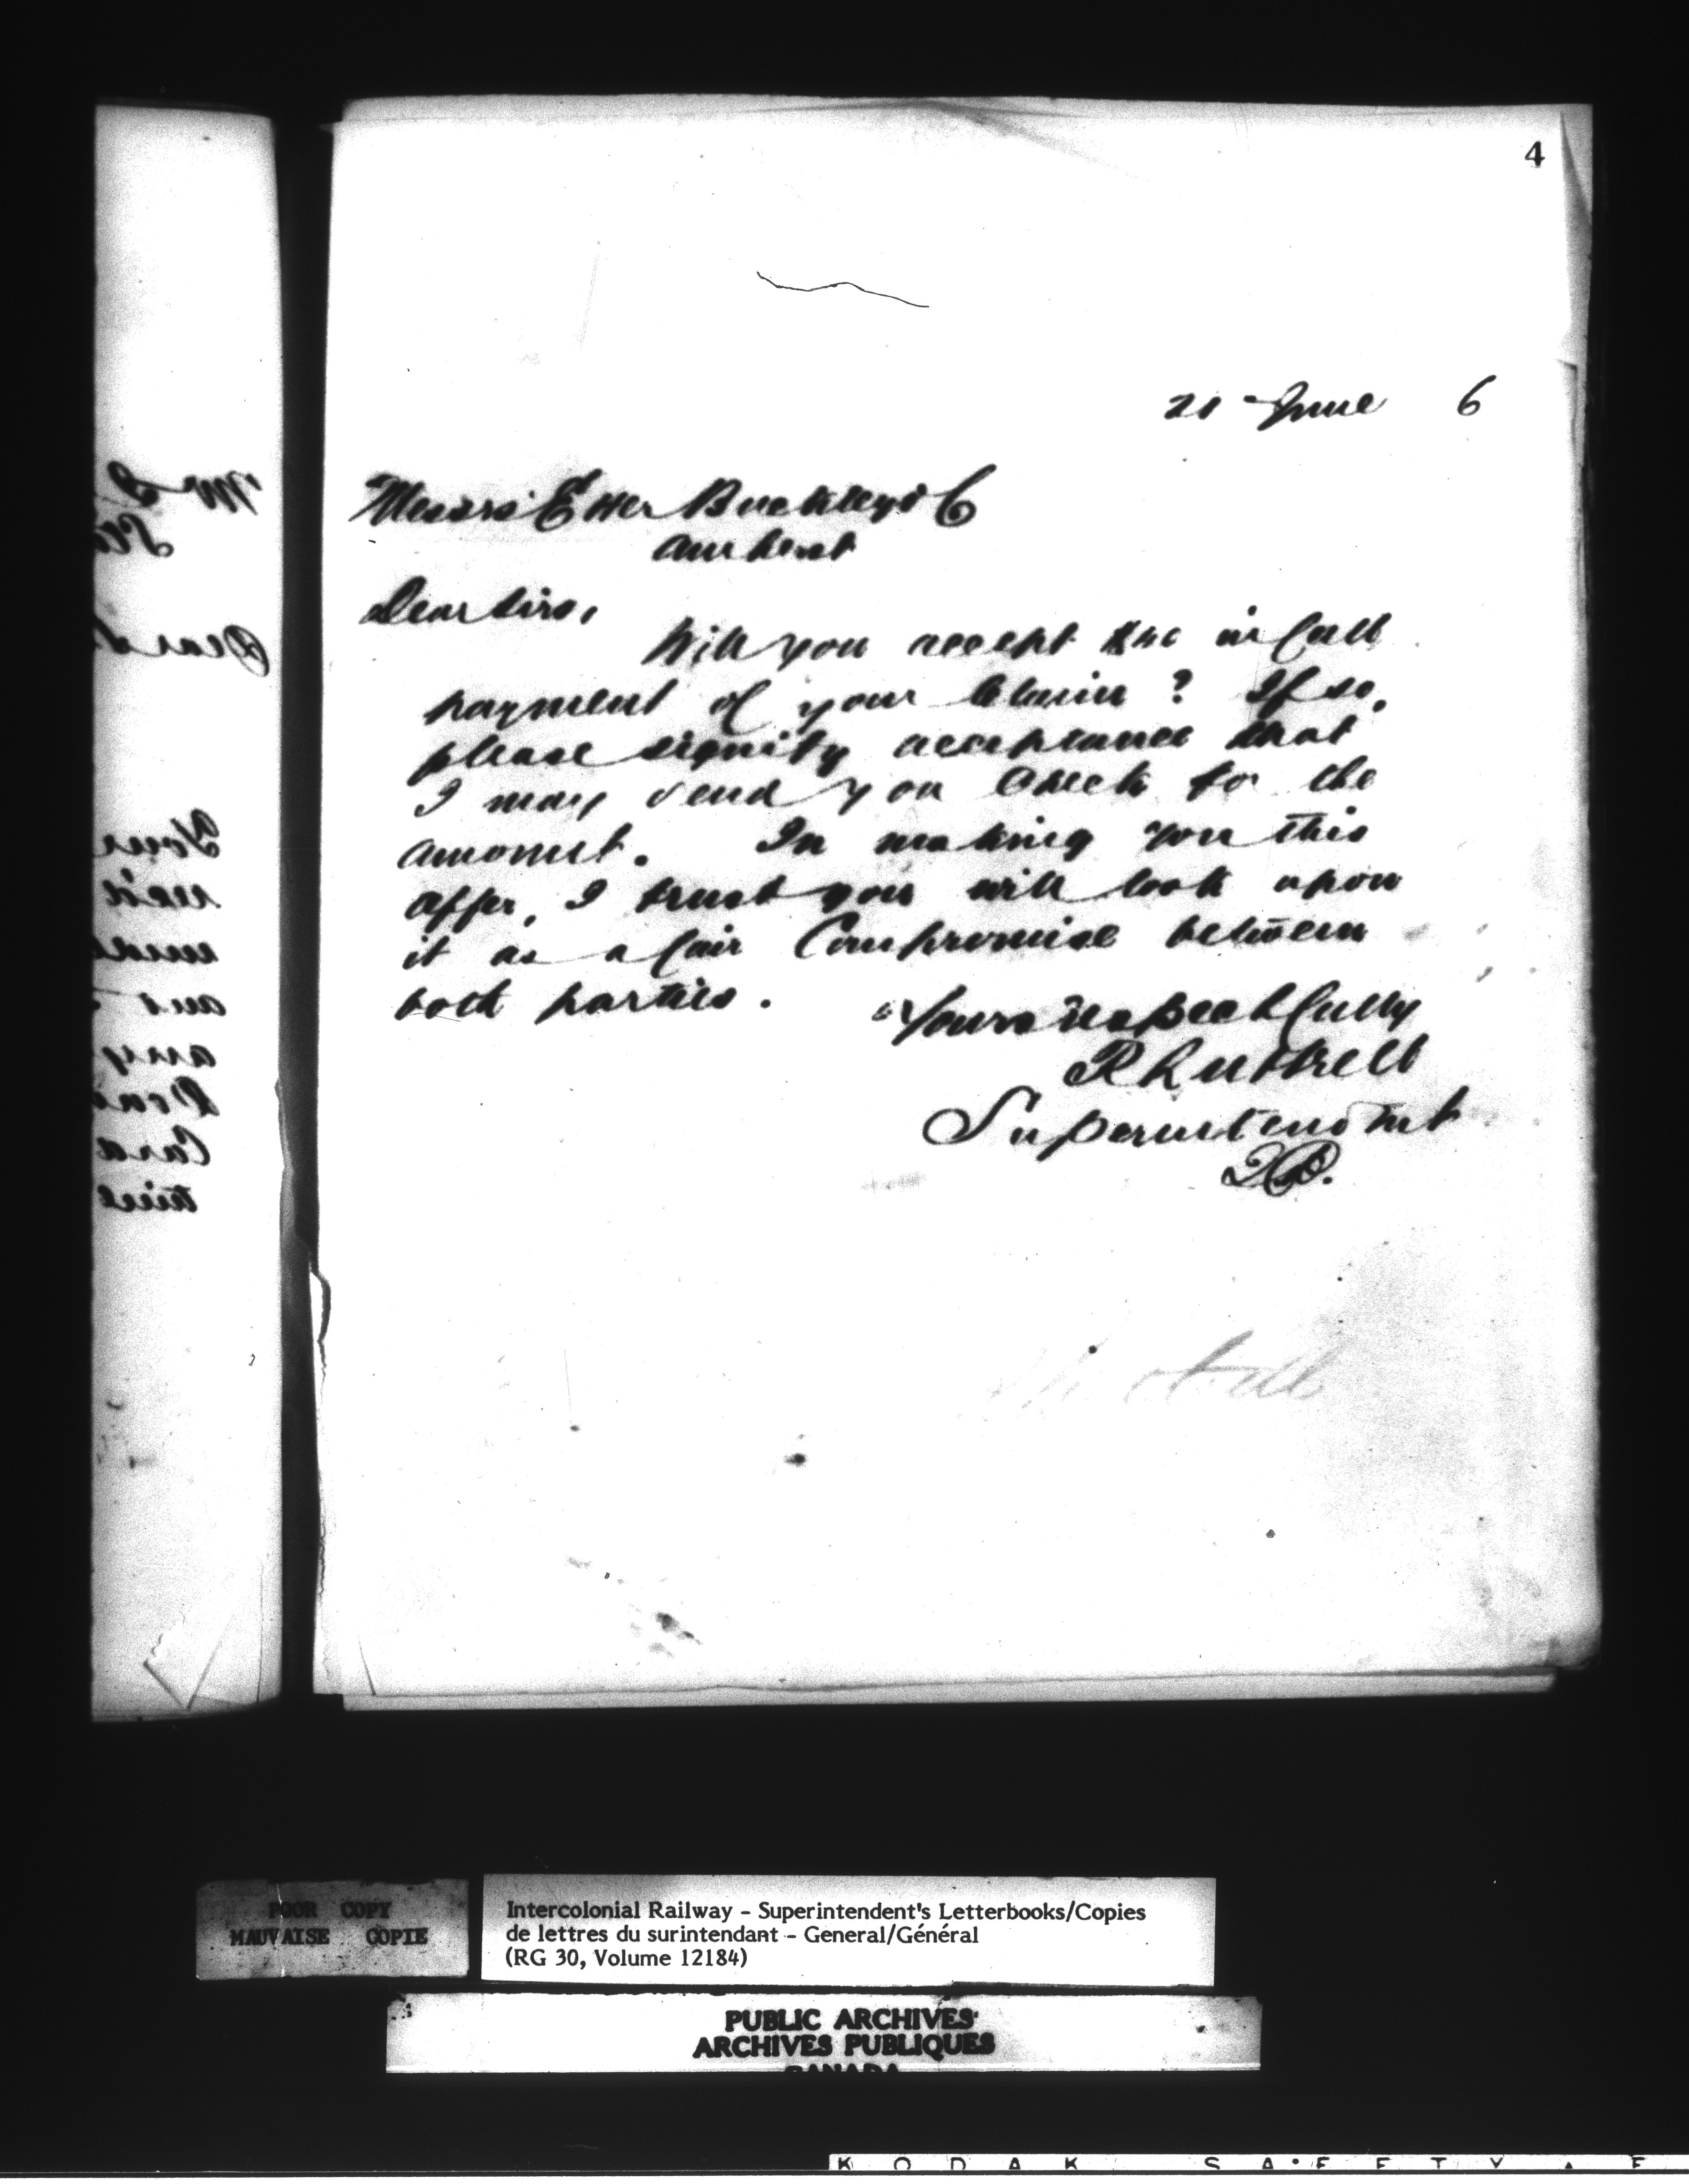 4
21 June 6
Messrs Etter Buckley & C
Amherst
Dear Sirs,
Will you accept in full
payment of your claim ? If so,
please signify acceptance that
I may send you check for the
amount. In making you this
offer, I trust you will look upon
it as a fair Compromise between
both parties.
Yours respectfully
R Luttrell
Superintendent
POOR COPY
MAUVAISE COPIE
Intercolonial Railway - Superintendent's Letterbooks/Copies
de lettres du surintendant - General/Général
(RG 30, Volume 12184)
PUBLIC ARCHIVES
ARCHIVES PUBLIQUES
CANADA
KODAK SAFETY